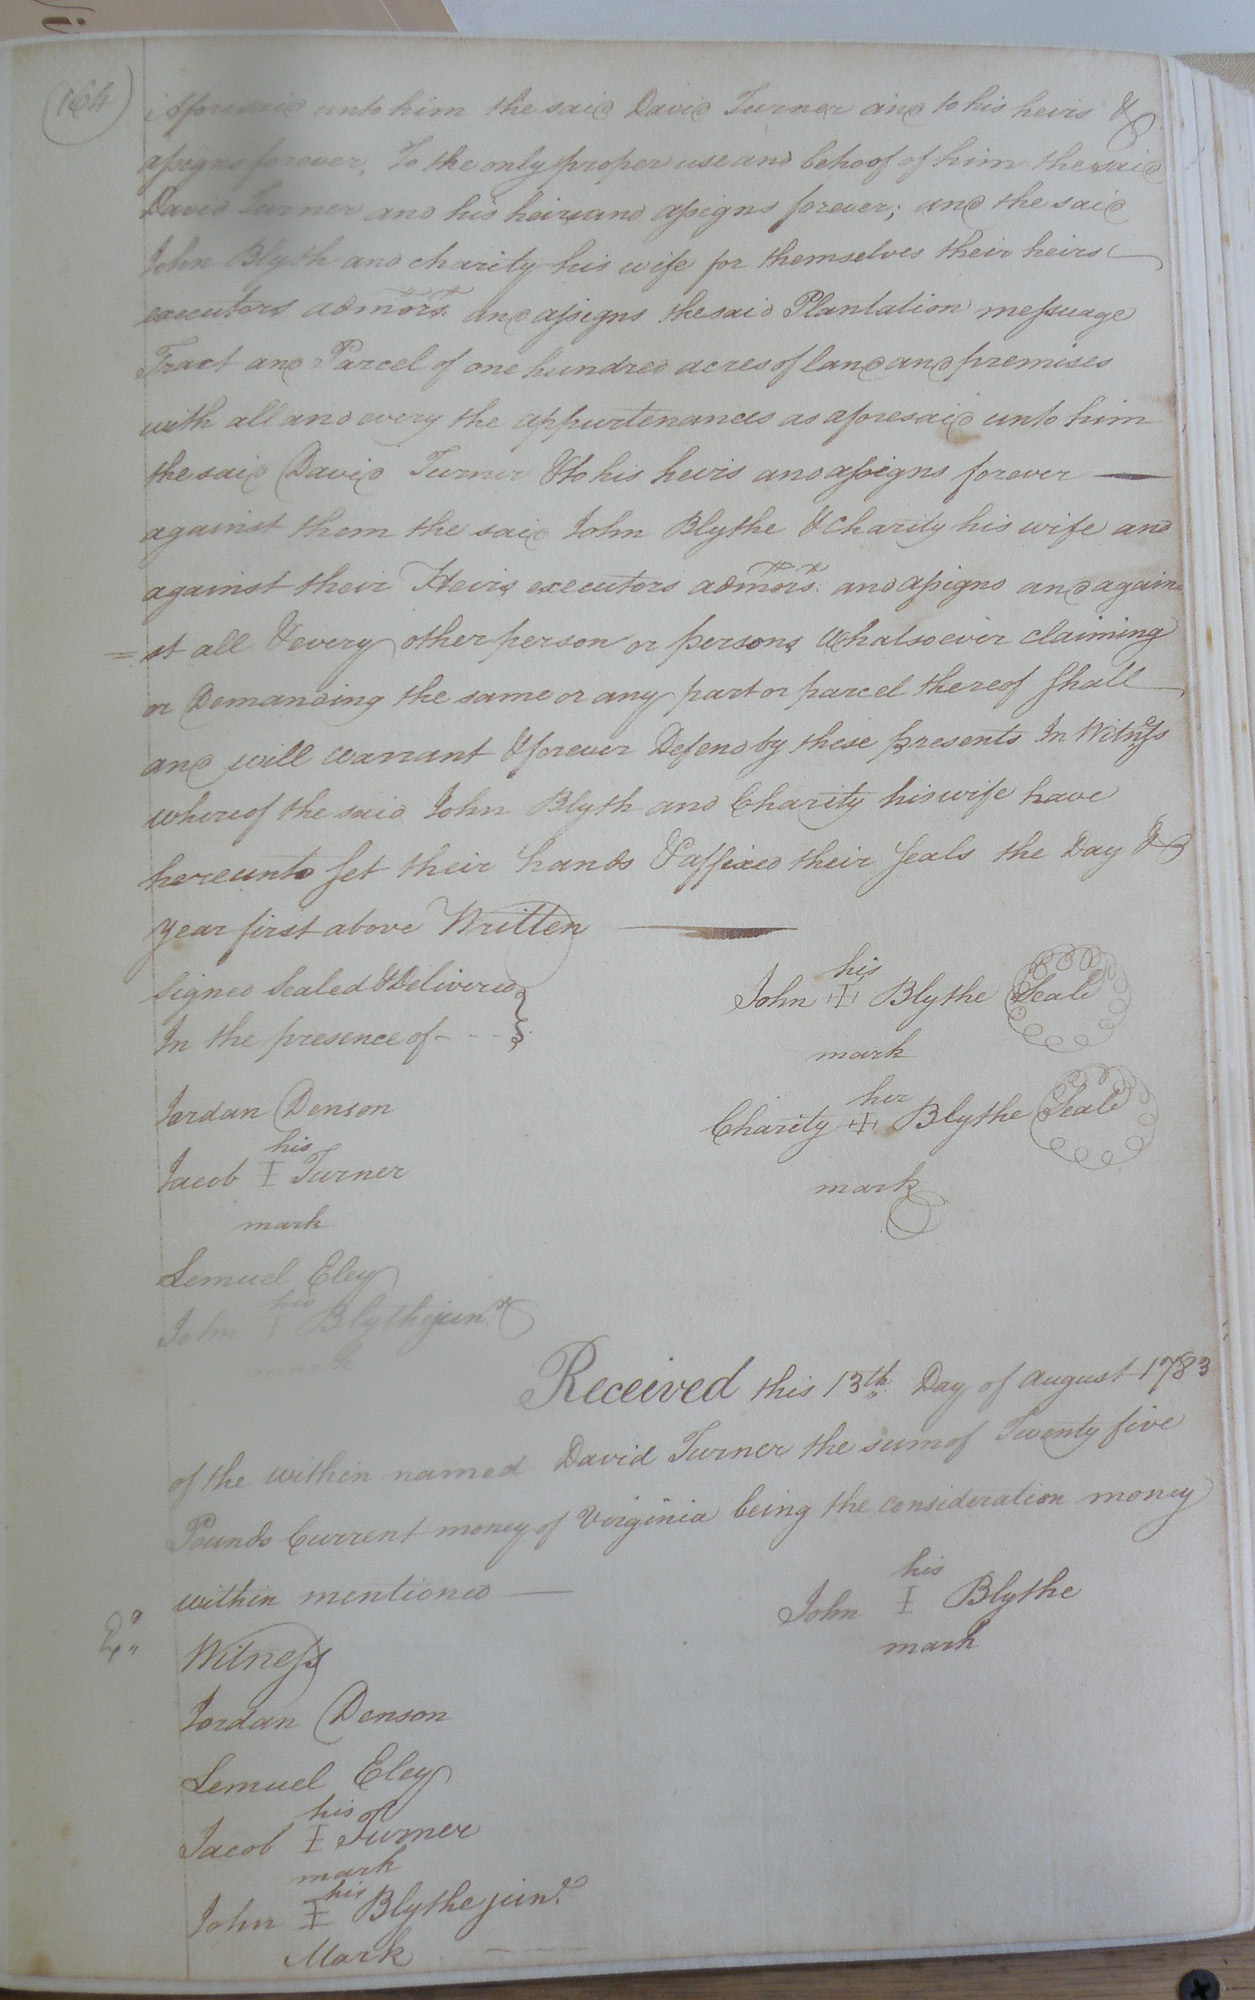 164
aforesaid unto him the said David Turner and to his heirs &
assigns forever, To the only proper use and behoof of him the said
David Turner and his heirs and assigns forever; and the said
John Blyth and charity his wife for themselves their heirs
executors admors. and assigns the said Plantation messuage
Tract and Parcel of one hundred acres of land and premises
with all and every the appurtenances as aforesaid unto him
the said David Turner & to his heirs and assigns forever
against them the said John Blythe & Charity his wife and
against their Heirs executors admors. and assigns and again
=st all & every other person or persons Whatsoever claiming
or Demanding the same or any part or parcel thereof Shall
and will warrant & forever Defend by these presents In Witness
whereof the said John Blyth and Charity his wife have
hereunto Set their hands & affixed their Seals the Day &
year first above Written
Signed Sealed & Delivered
In the presence of - - -
his
John + Blythe Seal
mark
her
Charity + Blythe Seal
mark
Jordan Denson
his
Jacob I Turner
mark
Lemuel Eley
his
John I Blythe junr.
mark
Received this 13th. Day of August 1783
of the within named David Turner the sum of Twenty five
Pounds Current money of Virginia being the consideration money
within mentioned
his
John I Blythe
mark
Witness
Jordan Denson
Lemuel Eley
his
Jacob I Turner
mark
his
John I Blythe junr.
Mark